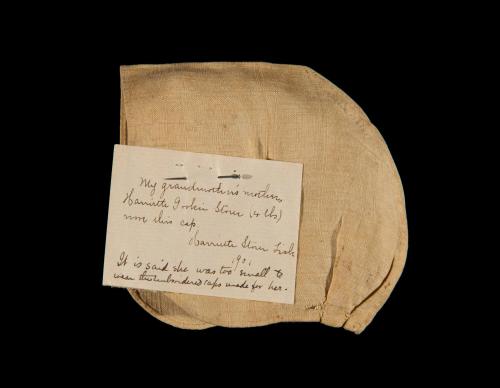 My grandmother's mother,
Harriette Gookin Storer (4 lbs)
wore this cap.
Harriette Storer Fisk
1901
It is said she was too small to
wear the embroidered caps made for her.